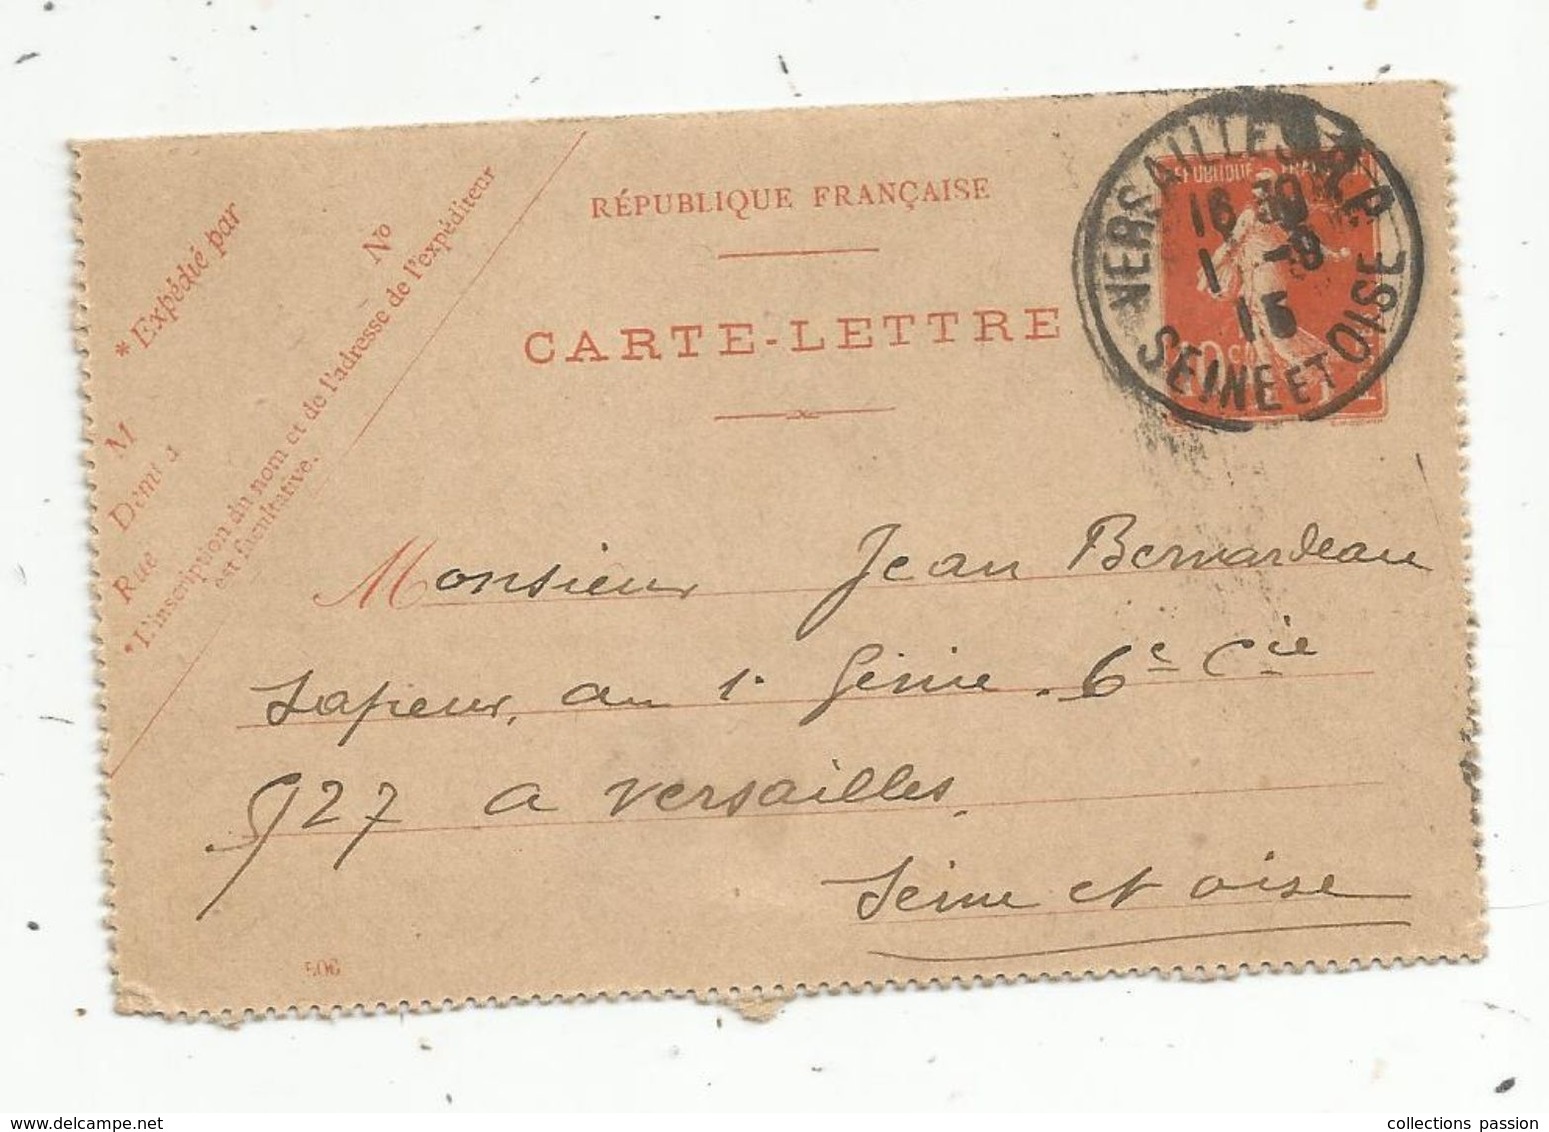 * Expédié par
No
M
Rue
*L'inscription du nom et de l'adresse de l'expéditeur
est facultative.
RÉPUBLIQUE FRANÇAISE
CARTE-LETTRE
VERSAILLES R.P
16 30
1 -9
15
SEINE ET OISE
Monsieur Jean Bernardeau
Sapeur, au 1. Génie. 6e Cie
927 a Versailles.
Seine et oise
506
delcampe.net
collections passion